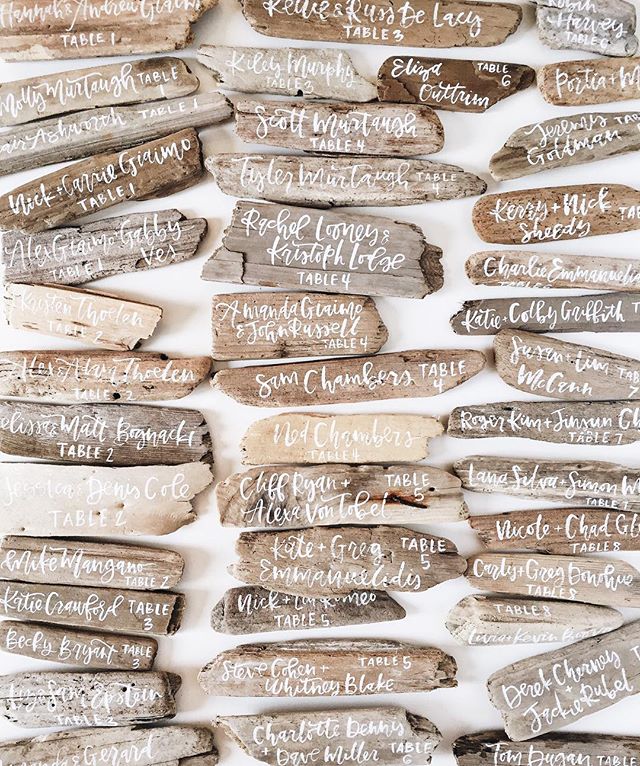 Hannah & Andrew Giaimo
TABLE 1
Molly Murtaugh TABLE
1
Ashworth TABLE 1
Nick + Carrie Giaimo
TABLE 1
Alex Giaimo Gabby
TABLE 1 Ves
Kristen Thoelen
TABLE 2
Alex & Alan Thoelen
TABLE 2
Matt Bognacki
TABLE 2
Jessica & Denis Cole
TABLE 2
Mike Mangano
TABLE 2
Katie Crawford TABLE
3
Becky Bryant TABLE
3
Epstein
TABLE 3
& Gerard
& Russ De Lacy
TABLE 3
Kiley Murphy
TABLE 3
Eliza TABLE
Outtrim 6
Scott Murtaugh
TABLE 4
Tyler Murtaugh TABLE
4
Rachel Looney &
Kristoph Lodge
TABLE 4
Amanda Giaimo
& John Russell
TABLE 4
Sam Chambers TABLE
4
Ned Chambers
TABLE 4
Cliff Ryan + TABLE
Alexa Von Tobel 5
Kate + Greg TABLE
Emmanuelidis 5
Nick + Romeo
TABLE 5
Steve Cohen + TABLE 5
Whitney Blake
Charlotte Dennis
+ Dave Miller TABLE
6
Robin
+ Harvey
TABLE 6
Portia +
Jeremis
Goldman
Kerry + Nick
Sheedy
Charlie
TABLE 6
Katie + Colby Griffith
Susan + Tim
McCann
Roger Kim + Jinsun
TABLE 7
Lana Silva + Simon
TABLE 7
Nicole + Chad
TABLE 8
Carly + Greg Donohue
TABLE 8
TABLE 8
+ Kevin
Derek Cherney
+
Jackie Rubel
Tom Dugan